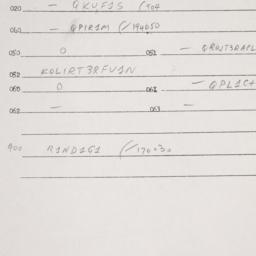 020 — QKYF1S (/904
060 — QPIRIM (/194050
050 0 051 — QRNT3RAPL
052 KOLIRT3RFV1N
060 0 061 — QPL1C+
062 — 063 —
900 R1ND1G1 (/170030